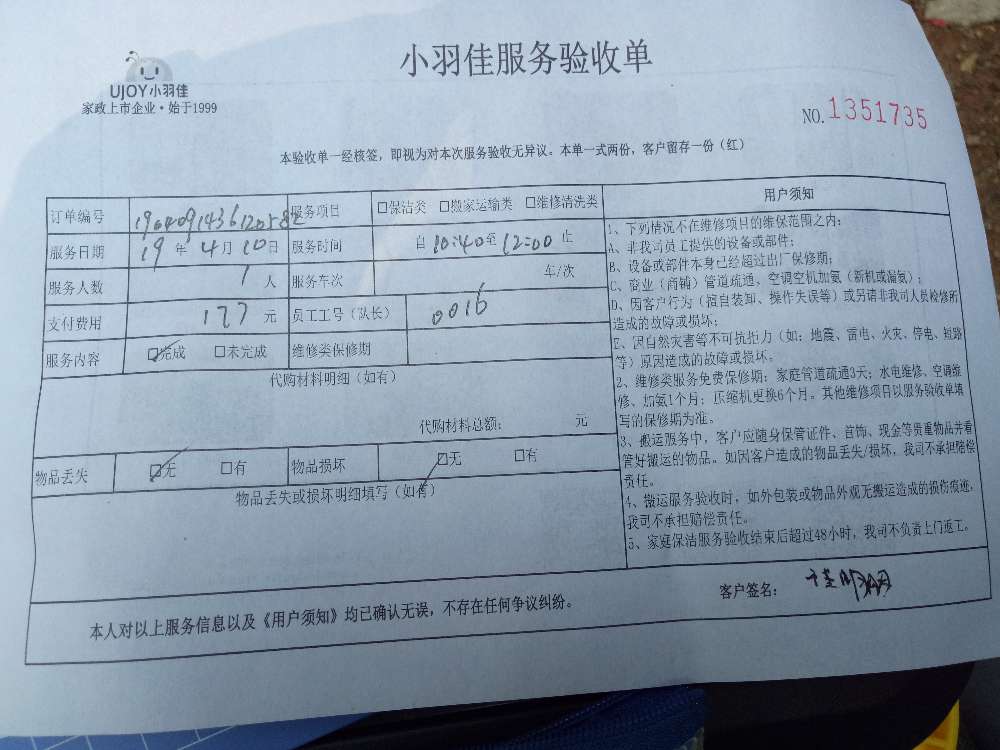 小羽佳服务验收单
UJOY小羽佳
家政上市企业·始于1999
NO.1351735
本验收单一经核签，即视为对本次服务验收无异议。本单一式两份，客户留存一份（红）
订单编号 服务项目 □保洁类 □搬家运输类 □维修清洗类
服务日期 19年4月10日 服务时间 自10:40至12:00止
服务人数 1人 服务车次 车/次
支付费用 177元 员工工号（队长） 0016
服务内容 ☑完成 □未完成 维修类保修期
代购材料明细（如有）
代购材料总额： 元
物品丢失 ☑无 □有 物品损坏 ☑无 □有
物品丢失或损坏明细填写（如有）
用户须知
1、下列情况不在维修项目的维保范围之内：
A、非我司员工提供的设备或部件；
B、设备或部件本身已经超过出厂保修期；
C、商业（商铺）管道疏通，空调空机加氨（新机或漏氨）；
D、因客户行为（擅自装卸、操作失误等）或另请非我司人员检修所
造成的故障或损坏；
E、因自然灾害等不可抗拒力（如：地震、雷电、火灾、停电、短路
等）原因造成的故障或损坏。
2、维修类服务免费保修期：家庭管道疏通3天；水电维修、空调维
修、加氨1个月；压缩机更换6个月。其他维修项目以服务验收单填
写的保修期为准。
3、搬运服务中，客户应随身保管证件、首饰、现金等贵重物品并看
管好搬运的物品。如因客户造成的物品丢失/损坏，我司不承担赔偿
责任。
4、搬运服务验收时，如外包装或物品外观无搬运造成的损伤痕迹，
我司不承担赔偿责任。
5、家庭保洁服务验收结束后超过48小时，我司不负责上门返工。
本人对以上服务信息以及《用户须知》均已确认无误，不存在任何争议纠纷。
客户签名：